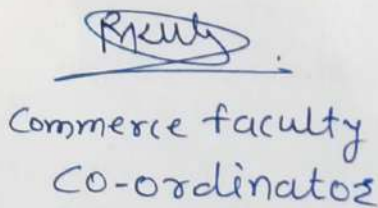 Commerce faculty
Co-ordinator